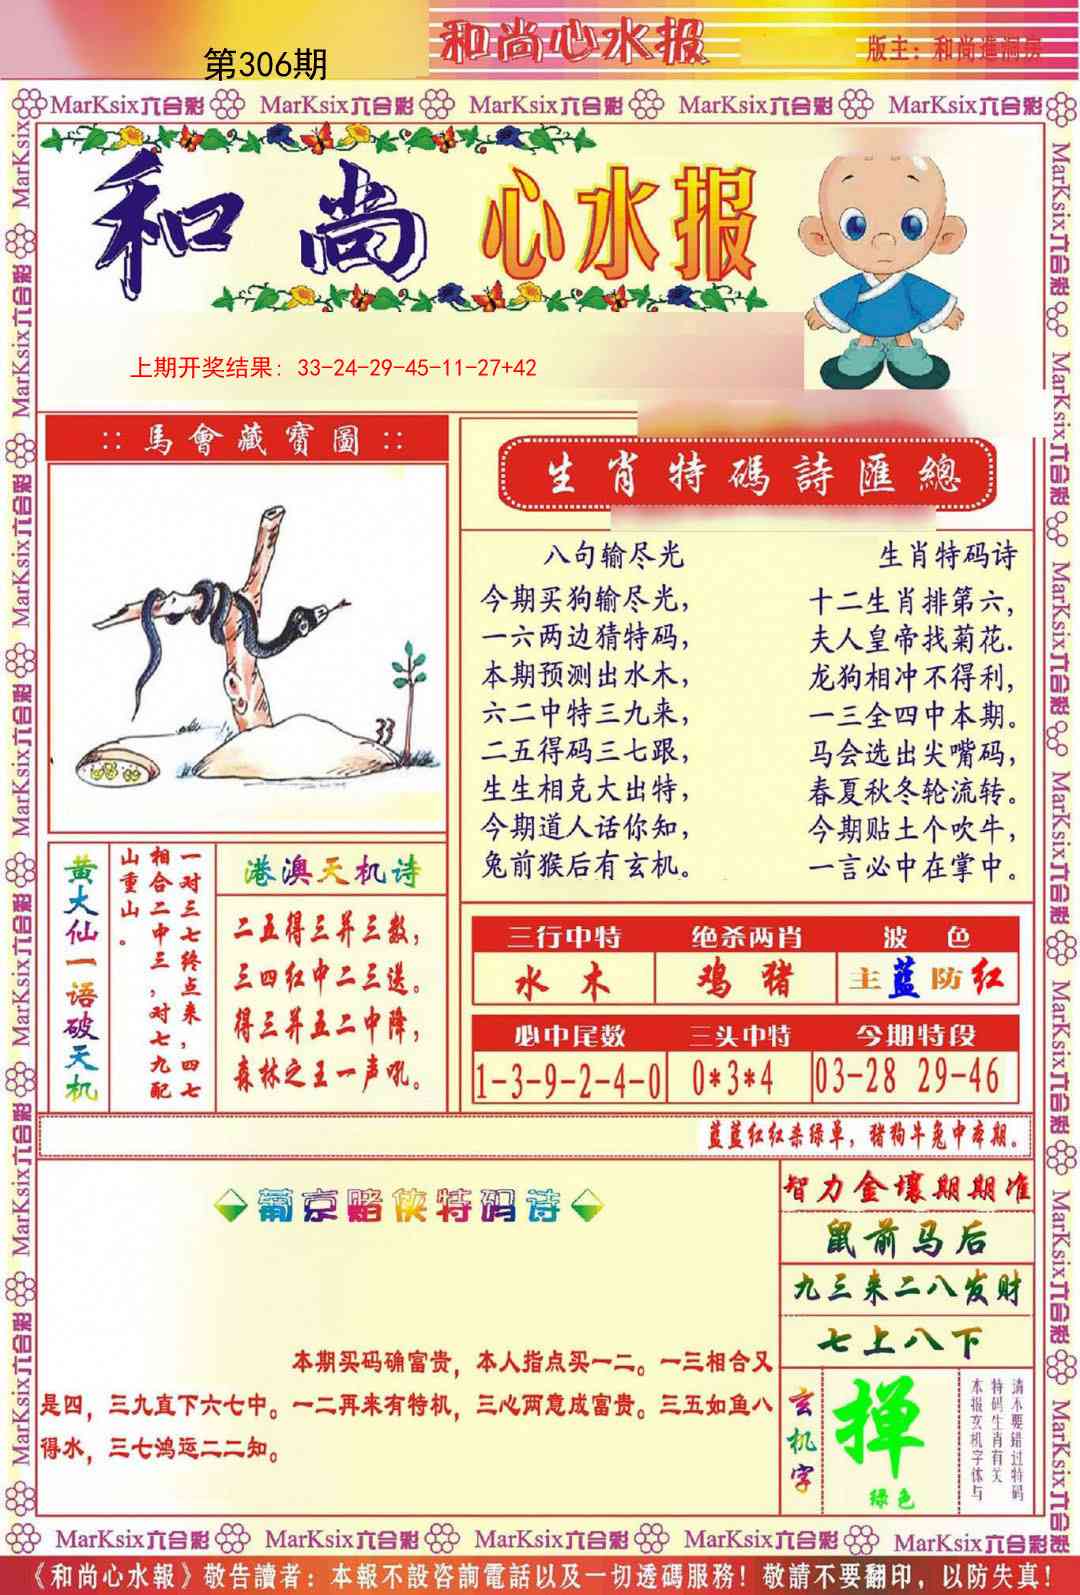 第306期
和尚心水报
版主：和尚進洞撰
MarKsix六合彩 MarKsix六合彩 MarKsix六合彩 MarKsix六合彩 MarKsix六合彩
和尚心水报
上期开奖结果：33-24-29-45-11-27+42
::馬會藏寶圖::
33
生肖特碼詩匯總
八句输尽光
今期买狗输尽光,
一六两边猜特码,
本期预测出水木,
六二中特三九来,
二五得码三七跟,
生生相克大出特,
今期道人话你知,
兔前猴后有玄机。
生肖特码诗
十二生肖排第六,
夫人皇帝找菊花.
龙狗相冲不得利,
一三全四中本期。
马会选出尖嘴码,
春夏秋冬轮流转。
今期贴土个吹牛,
一言必中在掌中。
黄大仙一语破天机
一对三七终点来,四七
相合二中三,对七九配
山重山。
港澳天机诗
二五得三并三数,
三四红中二三送。
得三并五二中降,
森林之王一声吼。
三行中特 绝杀两肖 波色
水木 鸡猪 主蓝防红
必中尾数 三头中特 今期特段
1-3-9-2-4-0 0*3*4 03-28 29-46
蓝蓝红红杀绿单，猪狗牛兔中本期。
葡京赌侠特码诗
本期买码确富贵，本人指点买一二。一三相合又
是四，三九直下六七中。一二再来有特机，三心两意成富贵。三五如鱼八
得水，三七鸿运二二知。
智力金壤期期准
鼠前马后
九三来二八发财
七上八下
玄机字
禅
绿色
请不要错过特码
特码生肖有关
本报玄机字体与
MarKsix六合彩 MarKsix六合彩 MarKsix六合彩 MarKsix六合彩 MarKsix六合彩
《和尚心水報》敬告讀者：本報不設咨詢電話以及一切透碼服務！敬請不要翻印，以防失真！